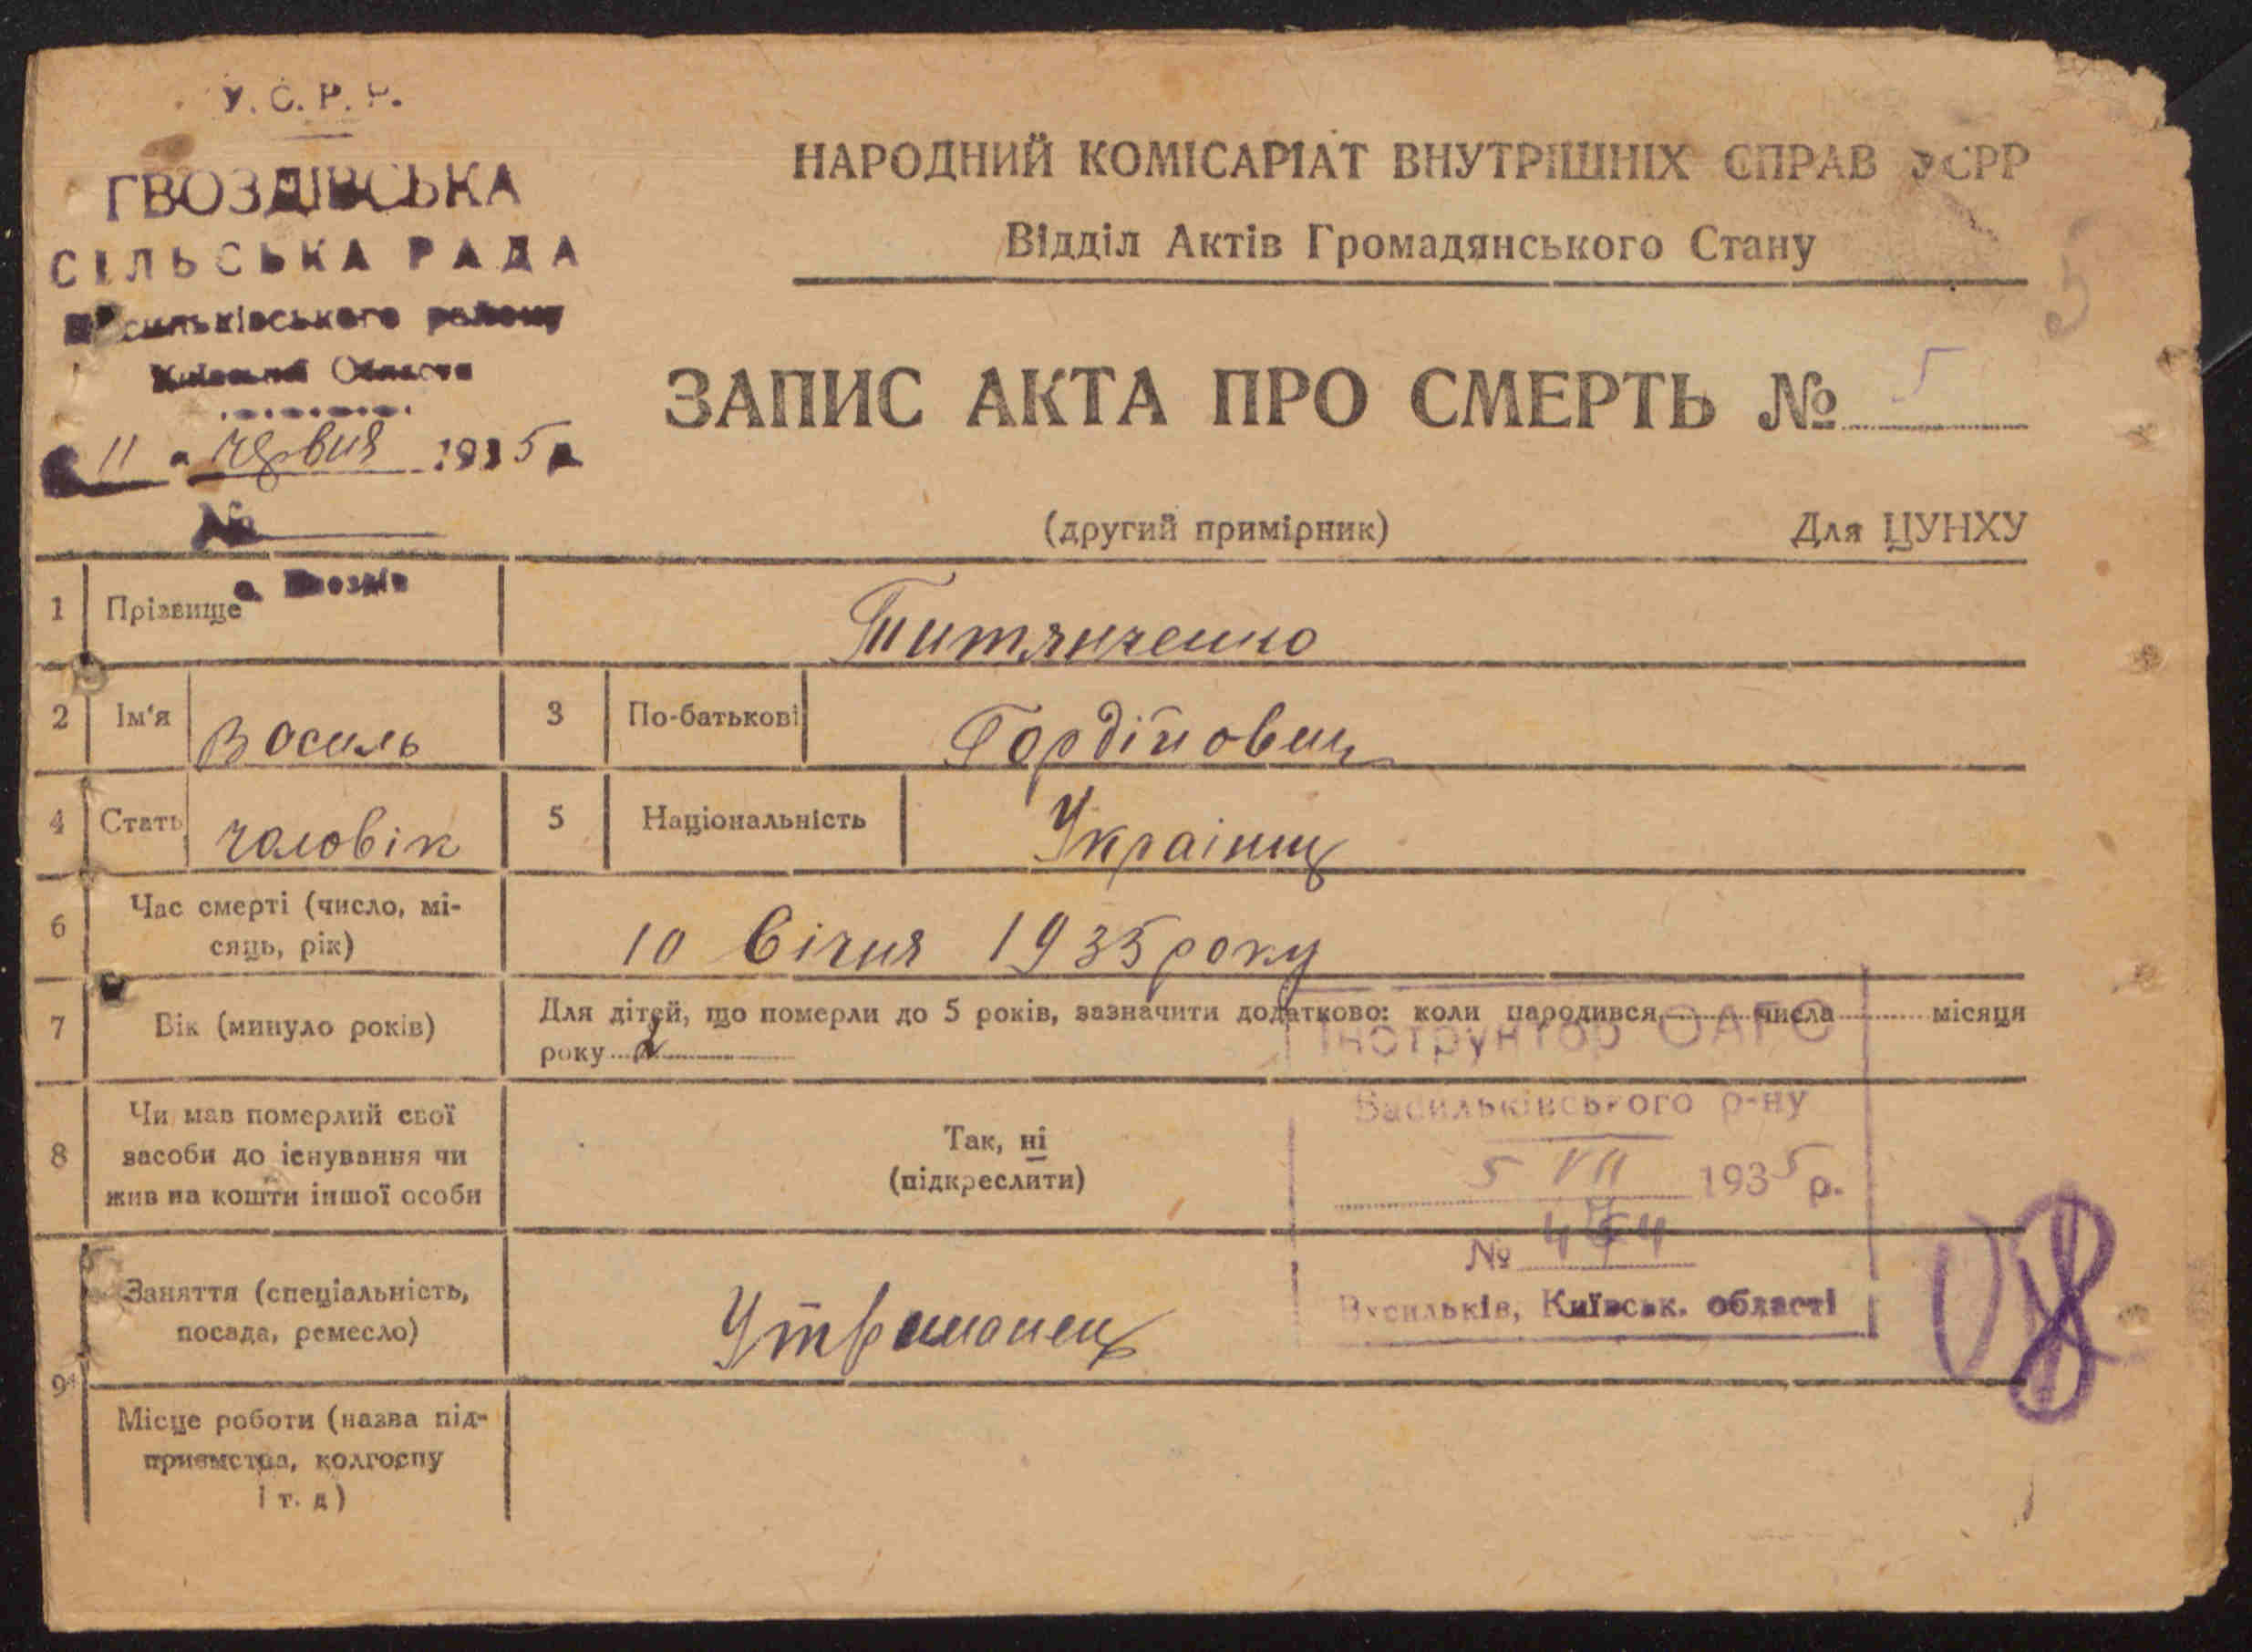 У.С.Р.Р.
ГВОЗДІВСЬКА
СІЛЬСЬКА РАДА
Васильківського району
Київської Области
11 червня 1935 р.
№
с. Гвоздів
НАРОДНИЙ КОМІСАРІАТ ВНУТРІШНІХ СПРАВ УСРР
Відділ Актів Громадянського Стану
5
ЗАПИС АКТА ПРО СМЕРТЬ № 5
(другий примірник) Для ЦУНХУ
1 Прізвище Титянченко
2 Ім'я Василь 3 По-батькові Гордійович
4 Стать чоловік 5 Національність Українец
6 Час смерті (число, мі-
сяць, рік) 10 Січня 1935 року
7 Вік (минуло років) Для дітей, що померли до 5 років, зазначити додатково: коли народився числа місяця
року 2
8 Чи мав померлий свої
засоби до існування чи
жив на кошти іншої особи
Так, ні
(підкреслити)
Інструктор ОАГС
Васильківського р-ну
5 VII 1935 р.
№
Васильків, Київськ. області
9 Заняття (спеціальність,
посада, ремесло) Утриманец
Місце роботи (назва під-
приємства, колгоспу
і т. д)